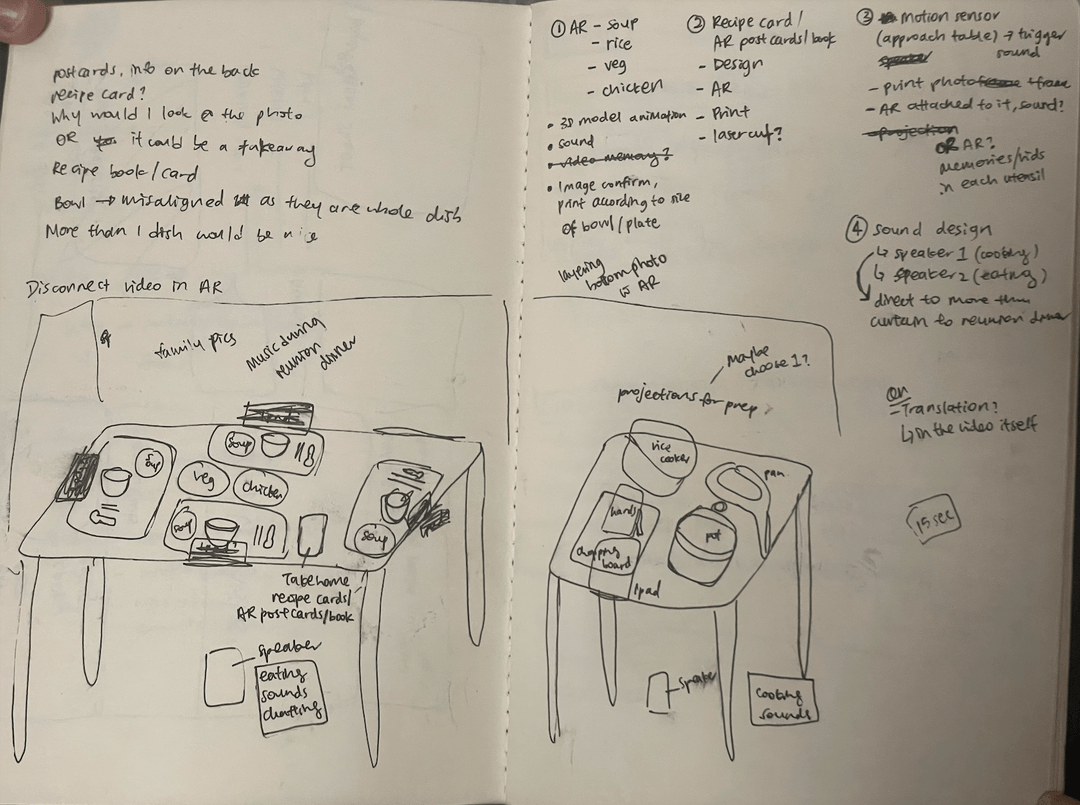 postcards, info on the back
recipe card?
Why would I look @ the photo
OR it could be a takeaway
Recipe book/card
Bowl → misaligned as they are whole dish
More than 1 dish would be nice
Disconnect video in AR
family pics
Music during
reunion
dinner
soup
soup
veg
chicken
soup
soup
Take home
recipe cards/
AR postcards/book
speaker
eating
sounds
chatting
① AR - soup
- rice
- veg
- chicken
• 3D model animation
• sound
• video memory?
• Image confirm,
print according to size
of bowl/plate
layering
bottom photo
is AR
② Recipe card/
AR postcards/book
- Design
- AR
- Print
- lasercut?
③ Motion sensor
(approach table) → trigger
speaker sound
- print photo frame
- AR attached to it, sound?
- projection
OR AR?
memories/vids
in each utensil
④ sound design
↳ speaker 1 (cooking)
↳ speaker 2 (eating)
direct to more than
curtain to reunion dinner
Maybe
choose 1?
projections for prep
OR
= Translation?
↳ in the video itself
15 sec
rice
cooker
pan
hands
pot
chopping
board
ipad
speaker
cooking
sounds